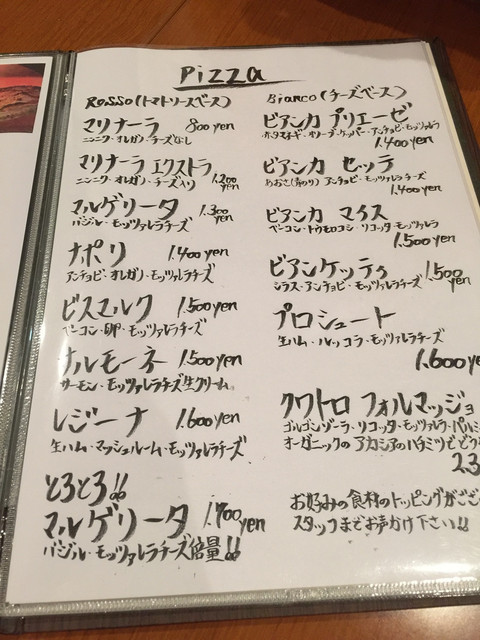 Pizza
Rosso (トマトソースベース)
マリナーラ 800 yen
ニンニク・オレガノ・チーズなし
マリナーラ エクストラ
ニンニク・オレガノ・チーズ入り 1.200 yen
マルゲリータ 1.300 yen
バジル・モッツァレラチーズ
ナポリ 1.400 yen
アンチョビ・オレガノ・モッツァレラチーズ
ビスマルク 1.500 yen
ベーコン・卵・モッツァレラチーズ
サルモーネ 1.500 yen
サーモン・モッツァレラチーズ生クリーム
レジーナ 1.600 yen
生ハム・マッシュルーム・モッツァレラチーズ
とろとろ!!
マルゲリータ 1.700 yen
バジル・モッツァレラチーズ倍量!!
Bianco (チーズベース)
ビアンカ プリエーゼ
タマネギ・オリーブ・ケッパー・アンチョビ・モッツァレラ
1.400 yen
ビアンカ セッテ
あおさ(青のり) アンチョビ・モッツァレラチーズ
1.400 yen
ビアンカ マイス
ベーコン・トウモロコシ・リコッタ・モッツァレラ
1.500 yen
ビアンケッティ 1.500 yen
シラス・アンチョビ・モッツァレラチーズ
プロシュート
生ハム・ルッコラ・モッツァレラチーズ
1.600 ye
クワトロ フォルマッジョ
ゴルゴンゾーラ・リコッタ・モッツァレラ・パルミ
オーガニックのアカシアのハチミツでどう
2.3
お好みの食材のトッピングがござ
スタッフまでお声かけ下さい!!